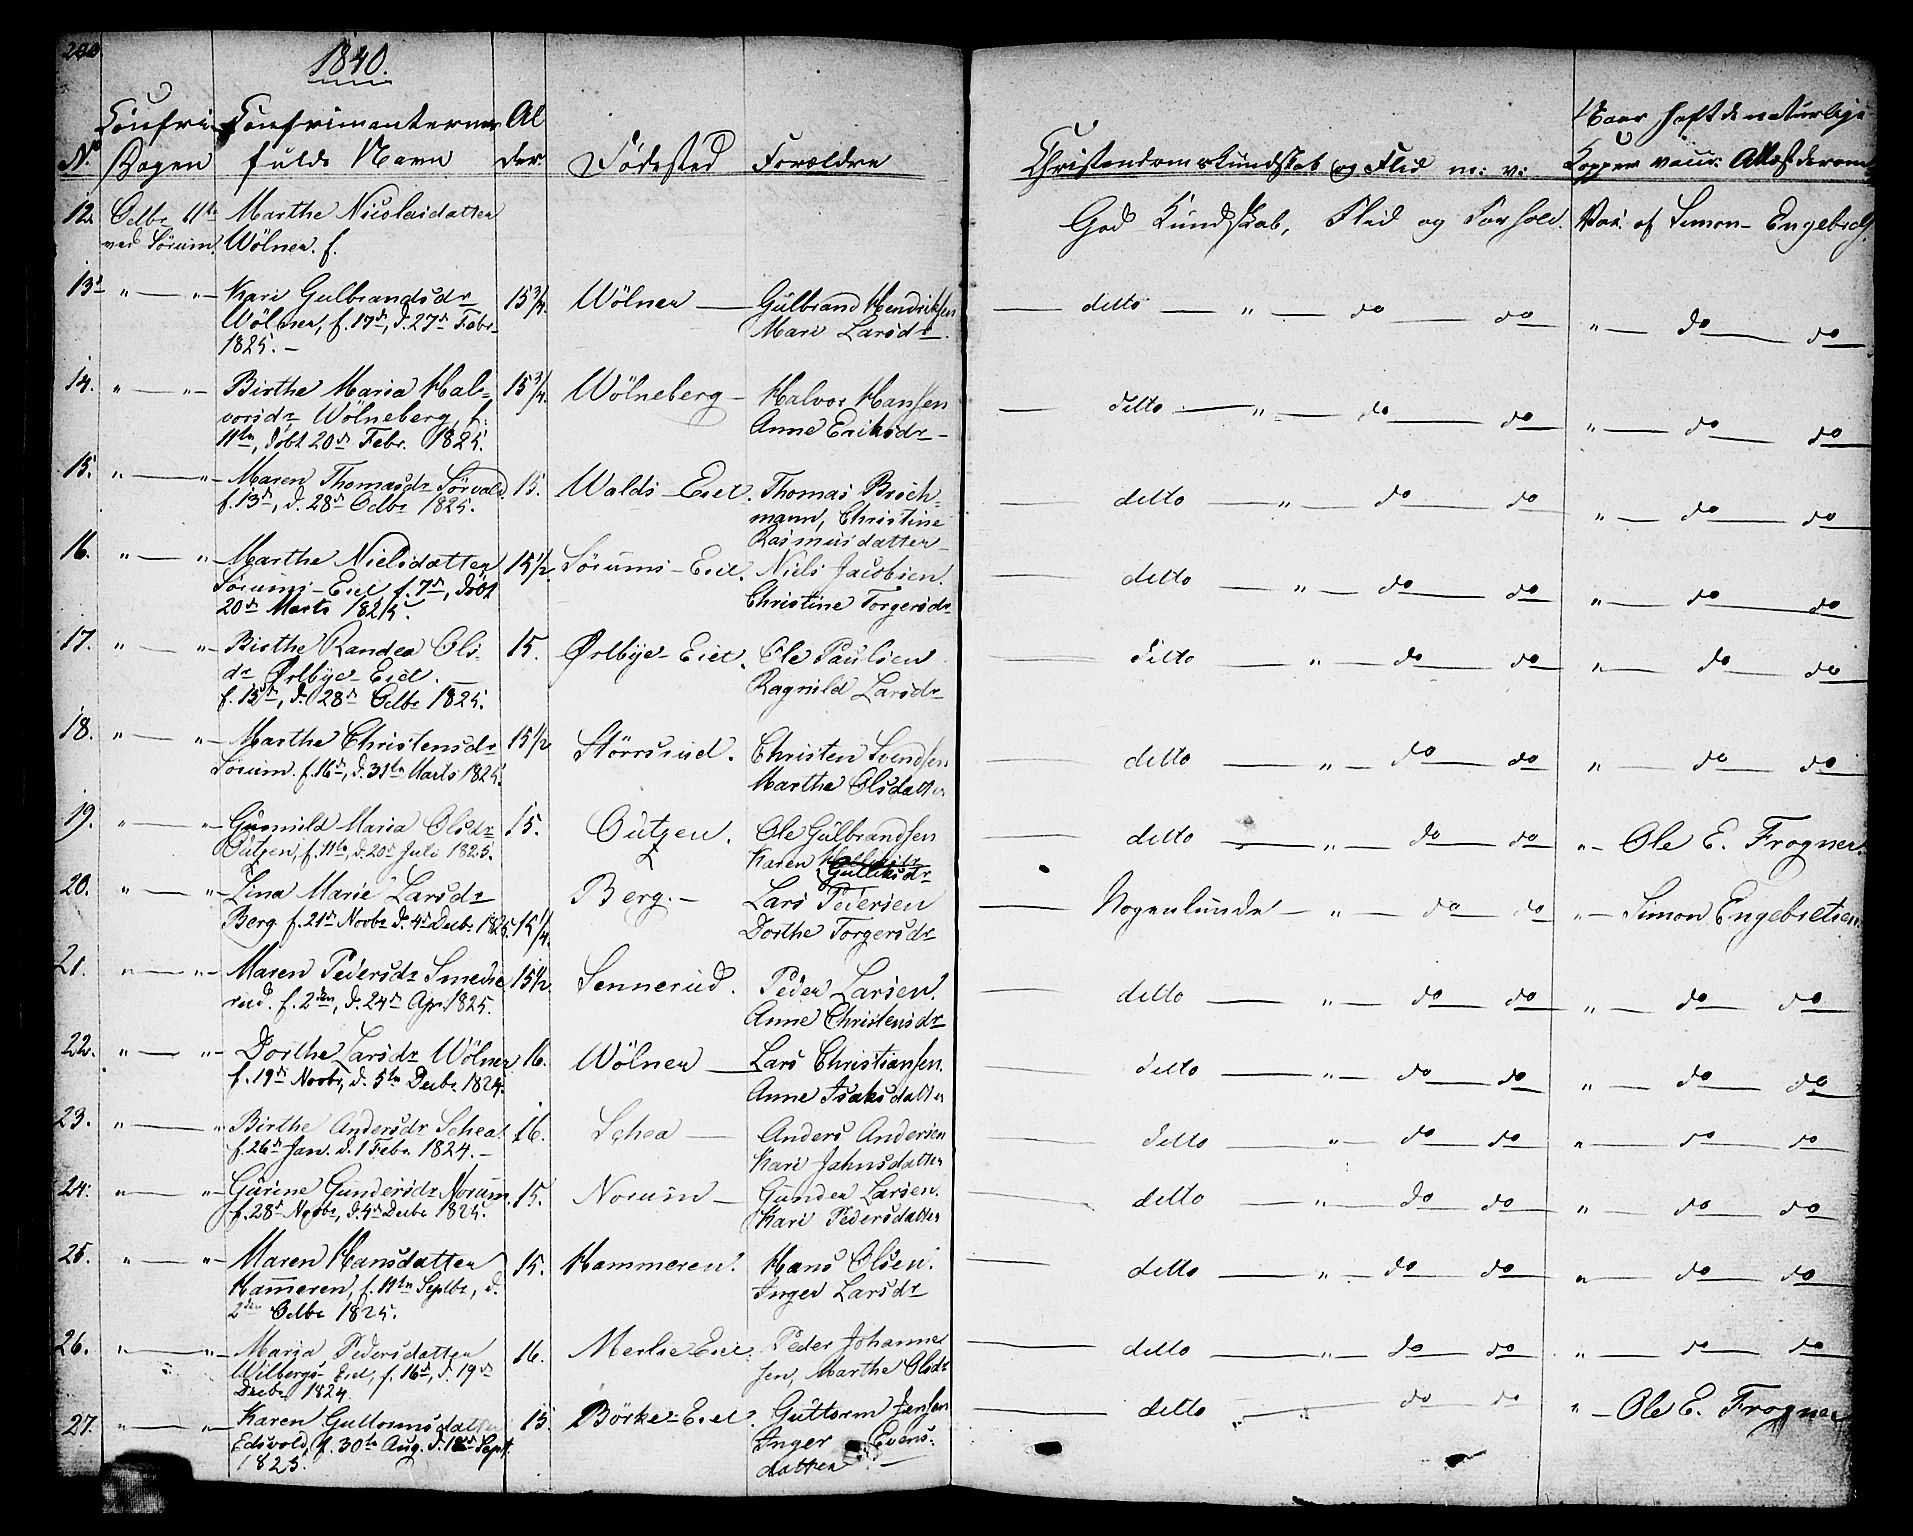 200
1840.
No Dagen Confirmanternes fulde Navn Alder Fødested Forældre Christendomskundskab og Flid m: v: Naar haft de naturlige Kopper vacc: Attest derom
12. Octbr 11te ved Sörum. Marthe Nicolaidatter God Kundskab, Flid og Forhold. Vac. af Simon Engebrets.
Wölner. f.
13. " — " — Kari Gulbrandsdr 15 3/4 Wölner — Gulbrand Hendriksen — ditto — " — do — do " — do — do
Wölner, f. 17de, d. 27de Febr Mari Larsdr
1825. —
14. " — " — Birthe Maria Hal- 15 3/4 Wölneberg — Halvor Hansen — ditto — " — do — do " — do — do
vorsdr Wölneberg, f. Anne Eriksdr —
11te, döbt 20de Febr. 1825.
15. " — " — Maren Thomasdr Sörvald. 15. Walds-Eiet. Thomas Broch- — ditto — " — do — do " — do — do
f. 13de, d. 28de Octbr 1825. mann, Christine
Rasmusdatter —
16. " — " Marthe Nielsdatter 15 1/2 Sörums-Eiet. Niels Jacobsen. — ditto — " — do — do " — do — do
Sörums-Eiet f. 7de, döbt Christine Torgersdr
20de Marts 1825.
17. " — " — Birthe Randea Ols- 15. Ørlbye-Eiet. Ole Paulsen — ditto — " — do — do " — do — do
dr Ørlbye-Eiet. Ragnild Larsdr
f. 15de, d. 28de Octbr 1825.
18. " — " — Marthe Christensdr 15 1/2 Störrsrud. Christen Svendsen — ditto — " — do — do " — do — do
Sörum. f. 16de, d. 31te Marts 1825. Marthe Olsdatter
19. " — " — Gunnild Maria Olsdr 15. Outzen. Ole Gulbrandsen — ditto — do — do " — Ole E. Frogner.
Outzen, f. 11te, d. 20de Juli 1825. Karen Gulliksdr
20. " — " — Lina Marie Larsdr Berg. — Lars Pedersen — Nogenlunde — " — do — do " — Simon Engebretsen.
Berg f. 21de Novbr d. 4de Decbr 1825. 15 1/4. Dorthe Torgersdr
21. " — " — Maren Pedersdr Smedie- 15 1/2 Sennerud. Peder Larsen. — ditto — " — do — do " — do — do
rud. f. 2den, d. 24de Apr. 1825. Anne Christensdr
22. " — " — Dorthe Larsdr Wölner 16. Wölner — Lars Christiansen. — ditto — " — do — do " — do — do
f. 19de Novbr, d. 5te Decbr 1824. Anne Isaksdatter
23. " — " — Birthe Andersdr Schea. 16. Schea — Anders Andersen — ditto — " — do — do " — do — do
f. 26de Jan. d. 1 Febr. 1824. — Kari Jahnsdatter
24. " — " — Gurine Gundersdr Norum. 15. Norum — Gunder Larsen. — ditto — " — do — do " — do — do
f. 28de Novbr, d. 4de Decbr 1825. Kari Pedersdatter
25. " — " Maren Hansdatter 15. Hammeren. Hans Olsen. — ditto — " — do — do " — do — do
Hammeren, f. 11te Septbr, d. Inger Larsdr
2den Octbr 1825.
26. " — " — Maria Pedersdatter 16. Merlie Eiet. Peder Johanne- — ditto — " — do — do " — do — do
Wilbergs-Eiet, f. 16de, d. 19de sen, Marthe Olsdr
Decbr 1824
27. " — " — Karen Guttormsdatter 15 Börke-Eiet. Guttorm Jensen — ditto — do do " — Ole E. Frogner
Edsvold, f. 30te Aug. d. 18de Sept. Inger Evens-
1825. datter —